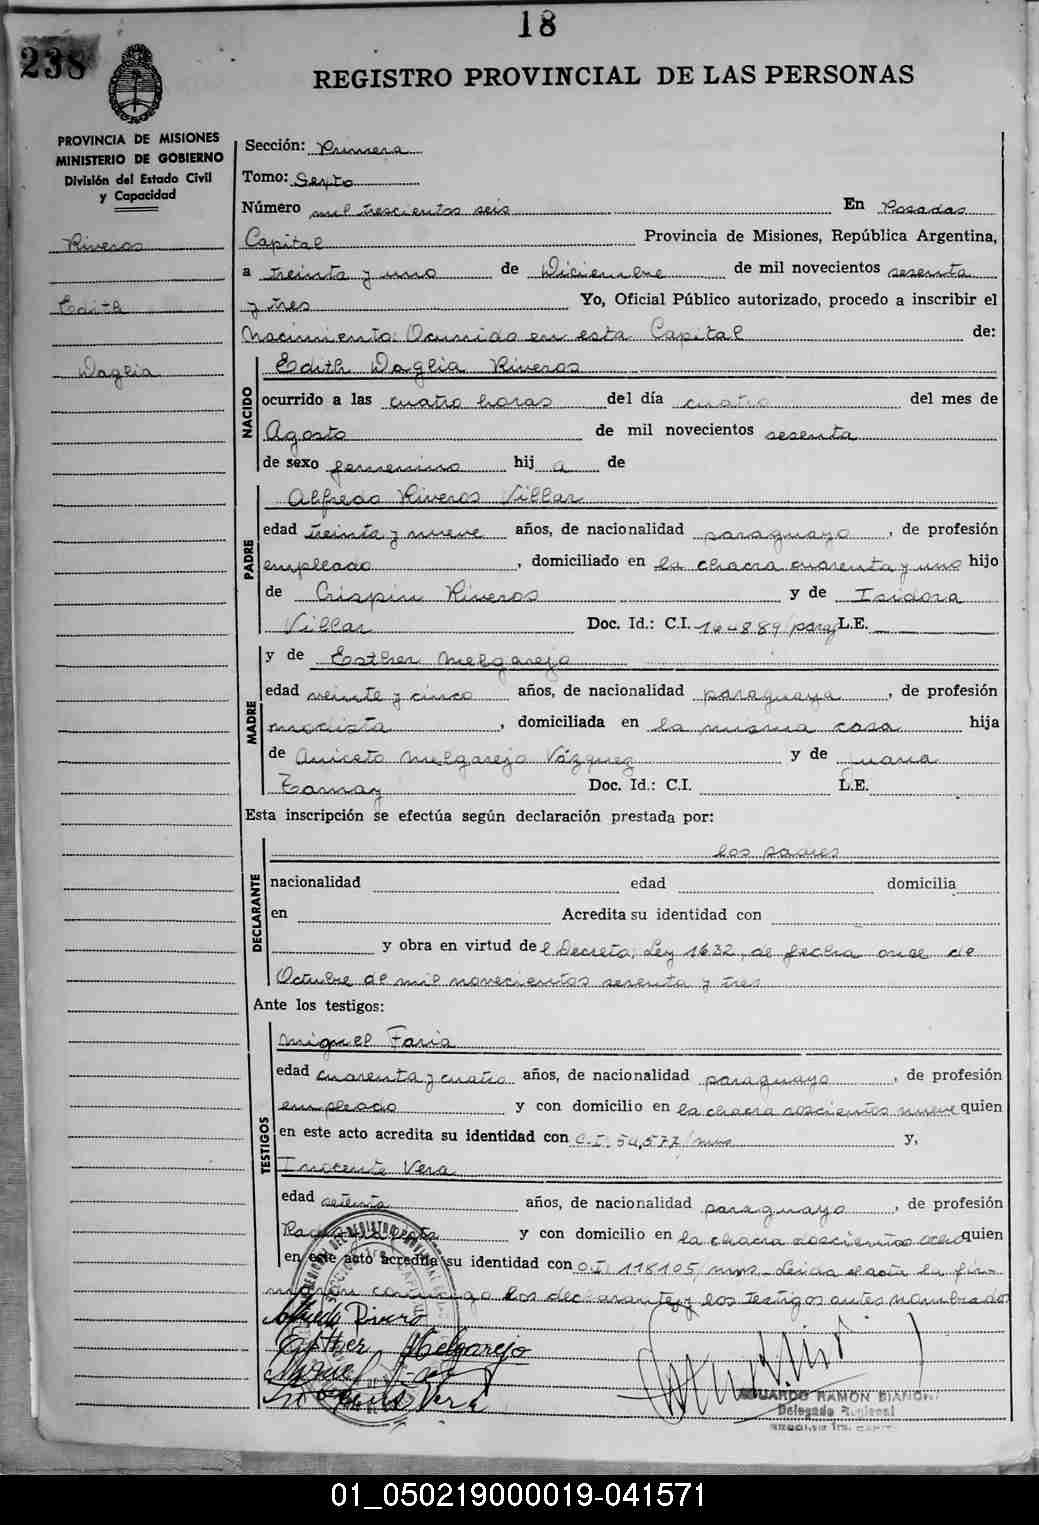 18
238
REGISTRO PROVINCIAL DE LAS PERSONAS
PROVINCIA DE MISIONES
MINISTERIO DE GOBIERNO
División del Estado Civil
y Capacidad
Riveros
Edith
Daglia
Sección: Primera
Tomo: Sexto
Número mil trescientos seis En Posadas
Capital Provincia de Misiones, República Argentina,
a treinta y uno de Diciembre de mil novecientos sesenta
y tres Yo, Oficial Público autorizado, procedo a inscribir el
Nacimiento: Ocurrido en esta Capital de:
NACIDO
Edith Daglia Riveros
ocurrido a las cuatro horas del día cuatro del mes de
Agosto de mil novecientos sesenta
de sexo femenino hij a de
PADRE
Alfredo Riveros Villar
edad treinta y nueve años, de nacionalidad paraguayo, de profesión
empleado, domiciliado en la chacra cuarenta y uno hijo
de Crispin Riveros y de Isidora
Villar Doc. Id.: C.I. 164889/parag L.E.
MADRE
y de Esther Melgarejo
edad veinte y cinco años, de nacionalidad paraguaya, de profesión
modista, domiciliada en la misma casa hija
de Aniceto Melgarejo Vázquez y de Juana
Doc. Id.: C.I. L.E.
Esta inscripción se efectúa según declaración prestada por:
DECLARANTE
los padres
nacionalidad edad domicilia
en Acredita su identidad con
y obra en virtud del Decreto Ley 1632, de fecha once de
Octubre de mil novecientos sesenta y tres
Ante los testigos:
TESTIGOS
Miguel Faria
edad cuarenta y cuatro años, de nacionalidad paraguayo, de profesión
empleado y con domicilio en la chacra doscientos nueve quien
en este acto acredita su identidad con C.I. 54,577/mns y,
Inocente Vera
edad setenta años, de nacionalidad paraguayo, de profesión
y con domicilio en la chacra doscientos ocho quien
en este acto acredita su identidad con C.I. 118105/mns. Leida el acta la fir-
maron conmigo los declarantes y los testigos antes nombrados
Alfredo Rivero
Esther Melgarejo
Miguel
Vera
EDUARDO RAMON BIANCHI
Delegado Regional
01_050219000019-041571